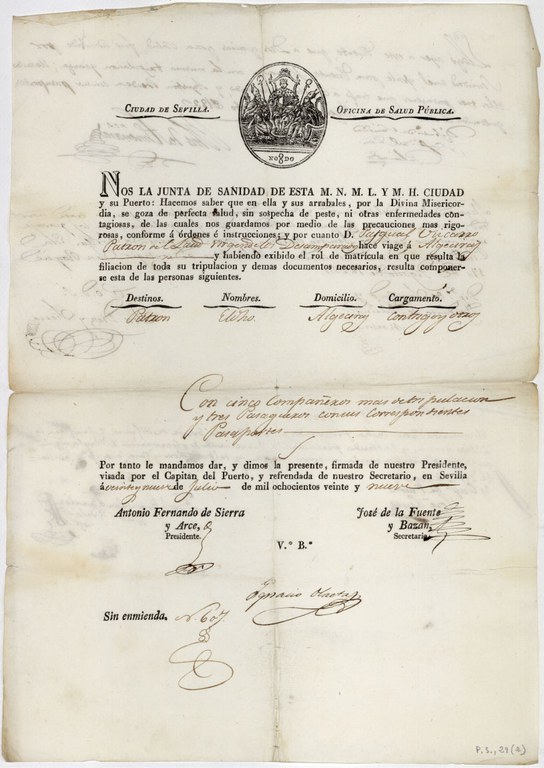 CIUDAD DE SEVILLA.
OFICINA DE SALUD PÚBLICA.
NO8DO
NOS LA JUNTA DE SANIDAD DE ESTA M. N. M. L. Y M. H. CIUDAD
y su Puerto: Hacemos saber que en ella y sus arrabales, por la Divina Misericor-
dia, se goza de perfecta salud, sin sospecha de peste, ni otras enfermedades con-
tagiosas, de las cuales nos guardamos por medio de las precauciones mas rigo-
rosas, conforme á órdenes é instrucciones; y por cuanto D. Pasqual
Patron de Laud Virgen de los Desamparados hace viage á Algeciras
y habiendo exibido el rol de matrícula en que resulta la
filiacion de toda su tripulacion y demas documentos necesarios, resulta componer-
se esta de las personas siguientes.
Destinos. Nombres. Domicilio. Cargamento.
Patron El dho. Algeciras
Con cinco Compañeros mas de tripulacion
y tres Pasageros con sus Correspondientes
Pasaportes
Por tanto le mandamos dar, y dimos la presente, firmada de nuestro Presidente,
visada por el Capitan del Puerto, y refrendada de nuestro Secretario, en Sevilla
á veinte y nueve de Julio de mil ochocientos veinte y nueve
Antonio Fernando de Sierra
y Arce,
Presidente.
José de la Fuente
y Bazan,
Secretario.
V.º B.º
Ygnacio Olaeta
Sin enmienda. N. 607
P.S., 29 (2)